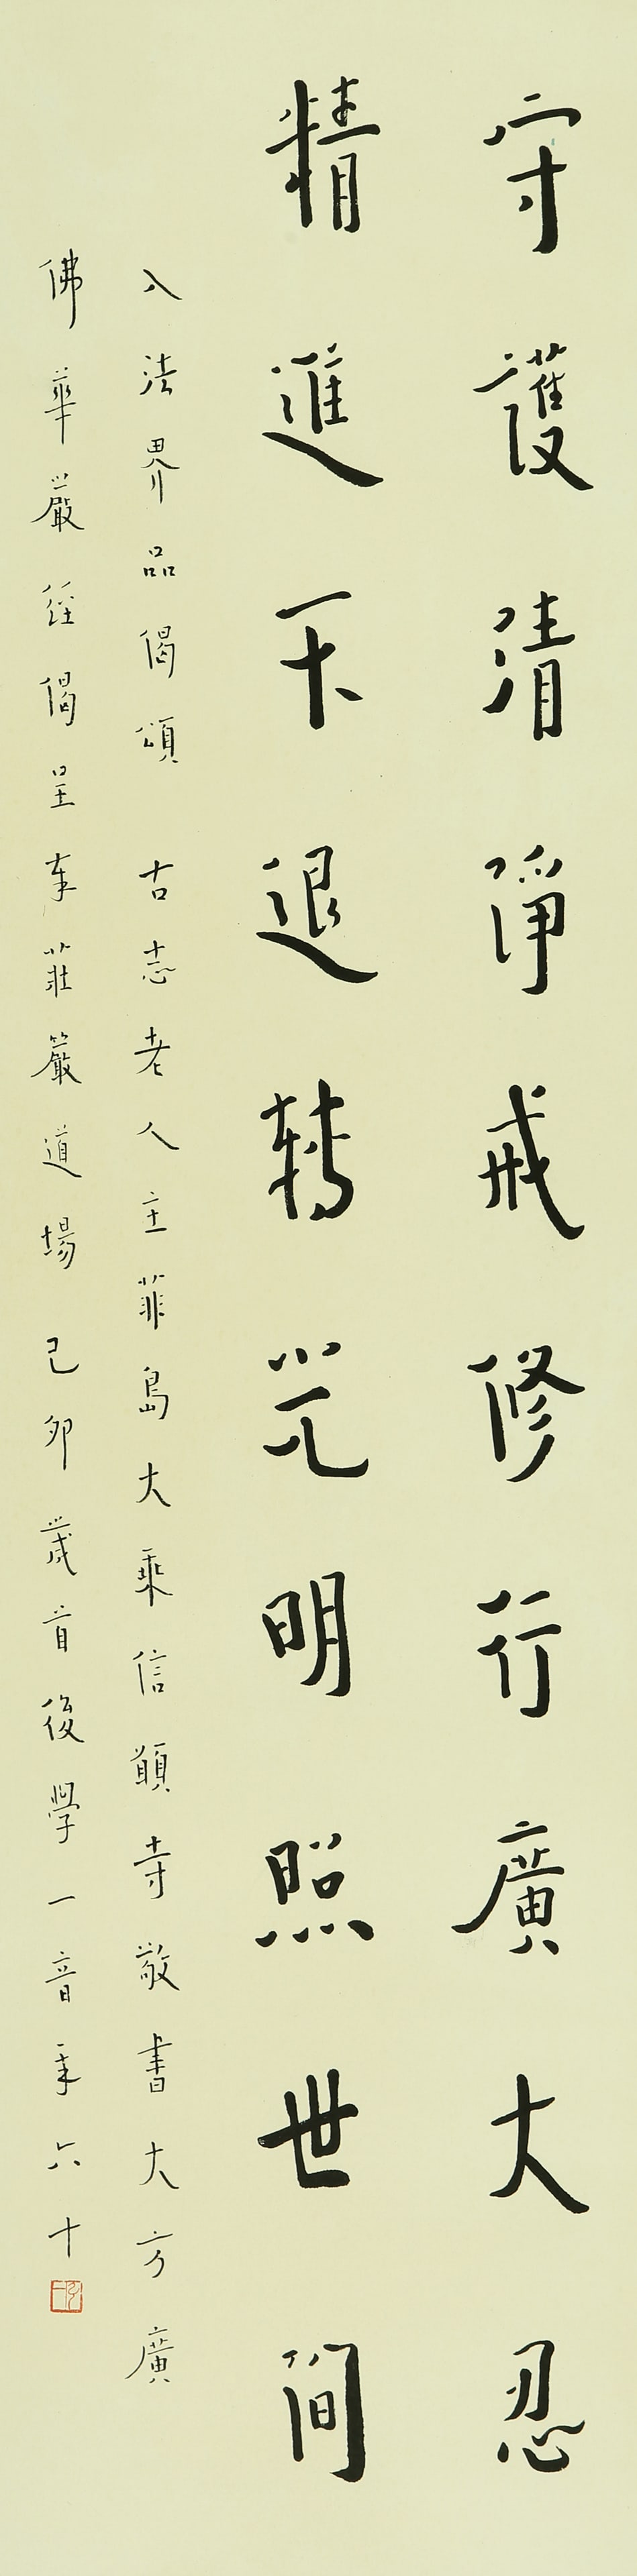 守護清淨戒修行廣大忍
精進不退轉光明照世間
入法界品偈頌 古志老人主菲島大乘信願寺敬書大方廣
佛華嚴經偈呈奉莊嚴道場 己卯歲首後學一音年六十